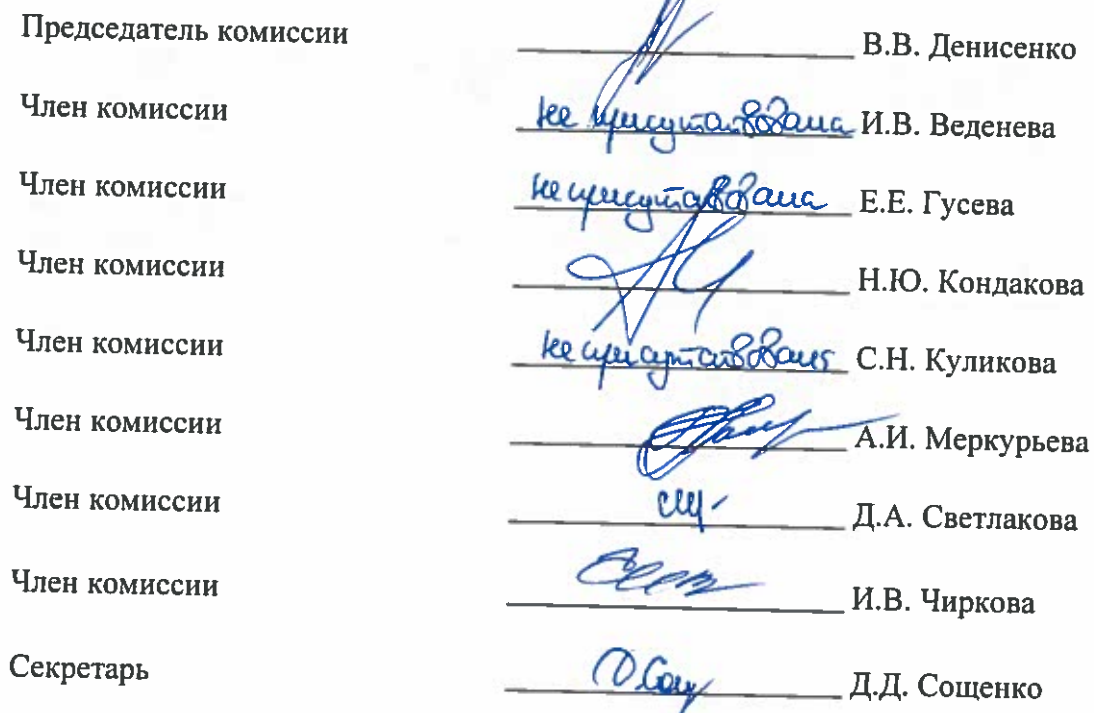 Председатель комиссии В.В. Денисенко
Член комиссии не присутствовала И.В. Веденева
Член комиссии не присутствовала Е.Е. Гусева
Член комиссии Н.Ю. Кондакова
Член комиссии не присутствовала С.Н. Куликова
Член комиссии А.И. Меркурьева
Член комиссии Д.А. Светлакова
Член комиссии И.В. Чиркова
Секретарь Д.Д. Сощенко